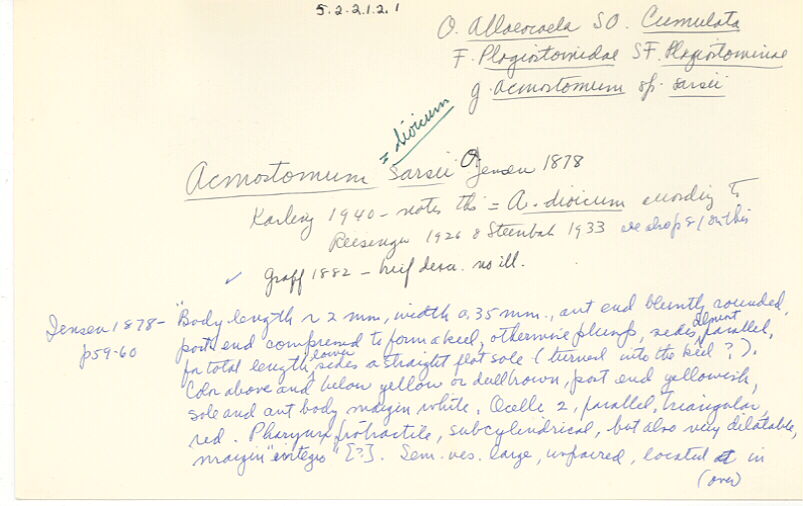 5.2.2.1.2.1
O. Alloeocoela SO. Cumulata
F. Plagiostomidae SF. Plagiostominae
g. Acmostomum sp. sarsii
= dioicum
Acmostomum Sarsii O. Jensen 1878
Karling 1940 - notes this = A. dioicum according to
Reisinger 1926 & Steinböck 1933
✓ Graff 1882 - brief descr. no ill.
Jensen 1878 - "Body length ~ 2 mm, width 0.35 mm., ant end bluntly rounded,
p59-60 post end compressed to form a keel, otherwise plump, sides almost parallel,
for total length, lower sides a straight flat sole (turned into the keel ?).
Color above and below yellow or dull brown, post end yellowish,
sole and ant body margin white. Ocelli 2, parallel, triangular,
red. Pharynx protractile, subcylindrical, but also very dilatable,
margin "integro" [?]. Sem. ves. large, unpaired, located at in
(over)